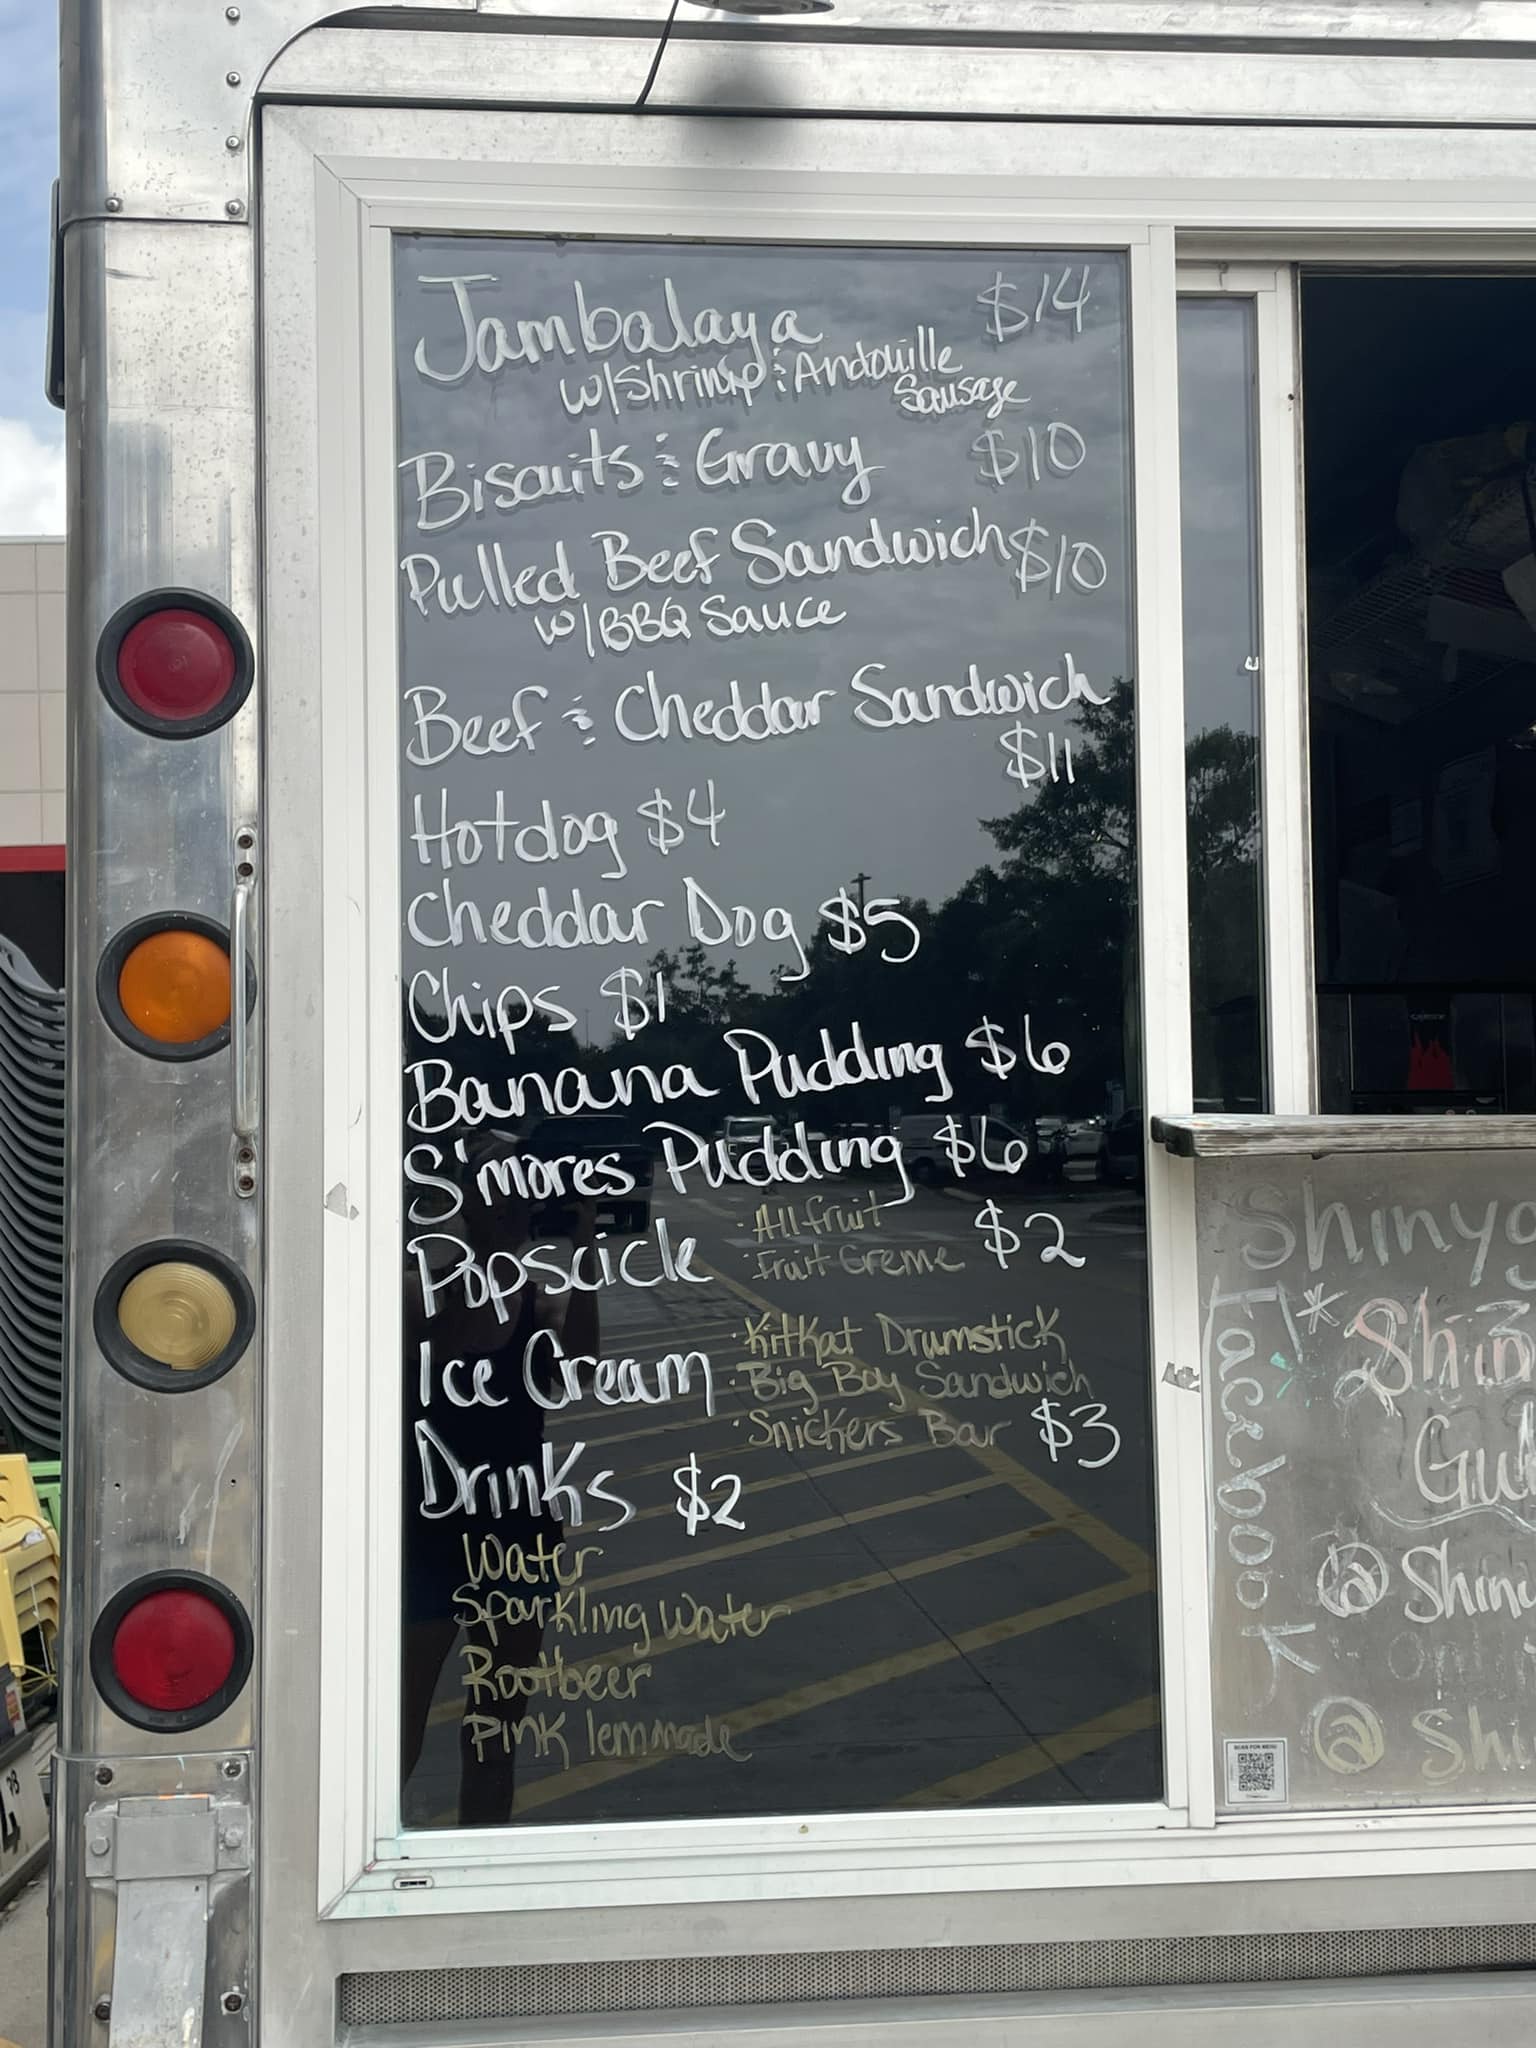 Jambalaya $14
w/Shrimp & Andouille
Sausage
Biscuits & Gravy $10
Pulled Beef Sandwich $10
w/BBQ Sauce
Beef & Cheddar Sandwich
$11
Hotdog $4
Cheddar Dog $5
Chips $1
Banana Pudding $6
S'mores Pudding $6
Popscicle · All fruit $2
· Fruit Creme
Ice Cream · KitKat Drumstick
· Big Boy Sandwich
· Snickers Bar $3
Drinks $2
Water
Sparkling Water
Rootbeer
Pink lemmade
Shinyg
Facebook
* Shin
Gul
@Shin
@Shi
SCAN FOR MENU